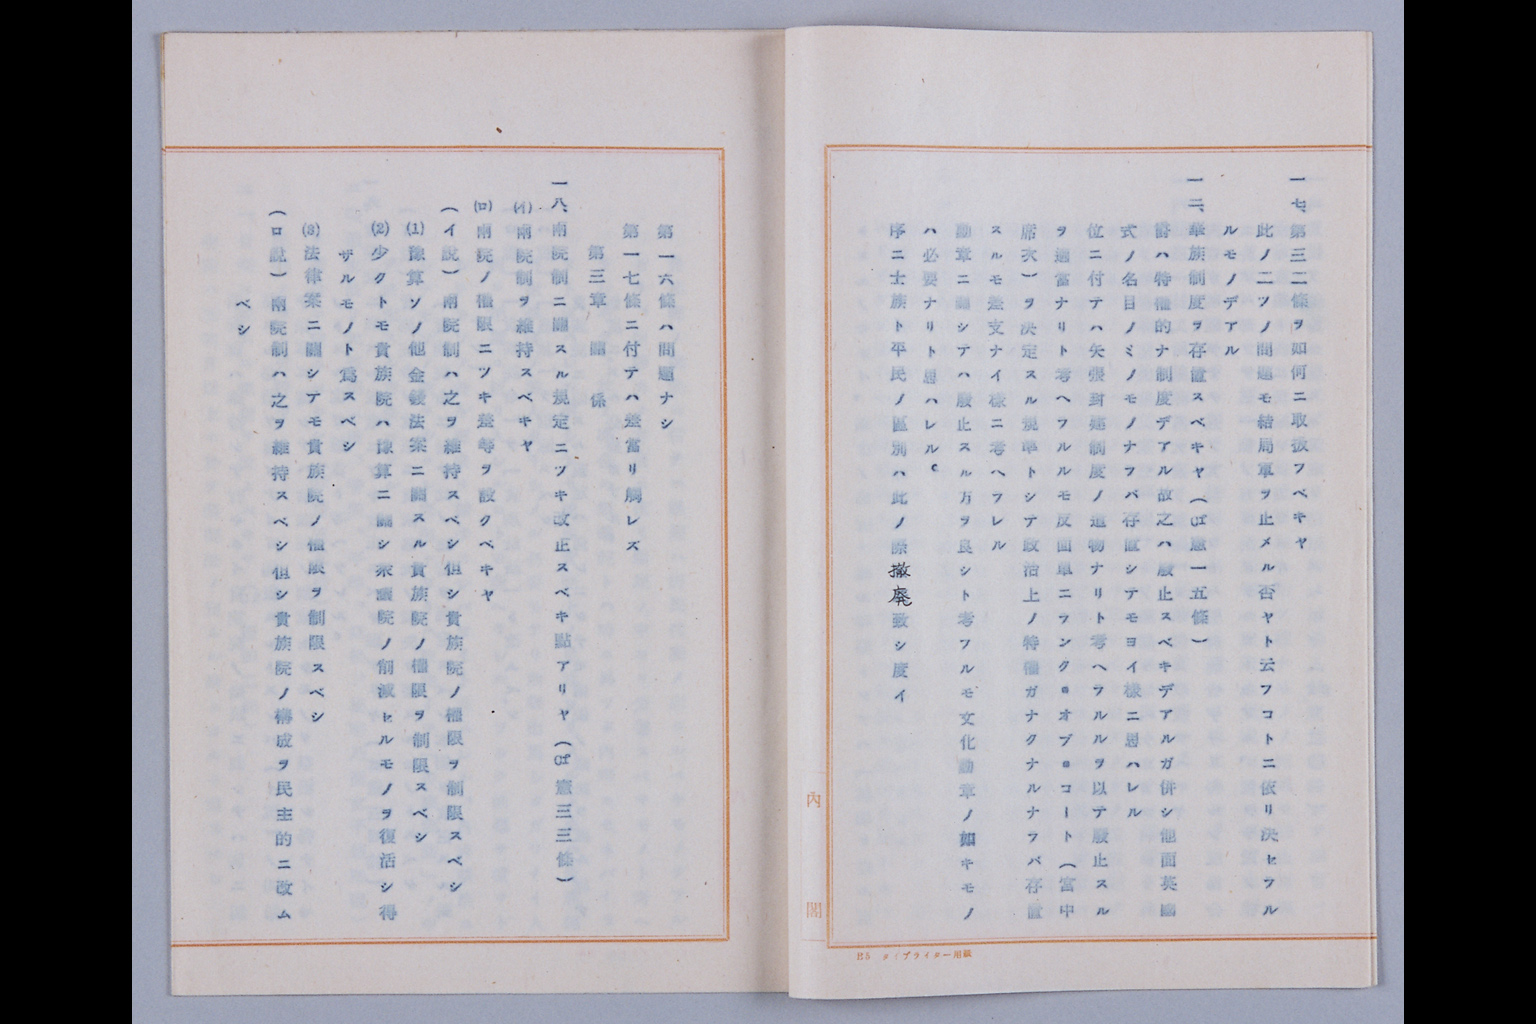 一七、第三二條ヲ如何ニ取扱フベキヤ
此ノ二ツノ問題モ結局軍ヲ止メル否ヤト云フコトニ依リ決セラル
ルモノデアル
一二、華族制度ヲ存置スベキヤ(憲一五條)
爵ハ特權的ナ制度デアル故之ハ廢止スベキデアルガ併シ他面英國
式ノ名目ノミノモノナラバ存置シテモヨイ樣ニ思ハレル
位ニ付テハ矢張封建制度ノ遺物ナリト考ヘラルルヲ以テ廢止スル
ヲ適當ナリト考ヘラルルモ反面單ニランクロオブロコート(宮中
席次)ヲ決定スル規準トシテ政治上ノ特權ガナクナルナラバ存置
スルモ差支ナイ樣ニ考ヘラレル
勳章ニ關シテハ廢止スル方ヲ良シト考フルモ文化勳章ノ如キモノ
ハ必要ナリト思ハレル。
序ニ士族ト平民ノ區別ハ此ノ際撤廃致シ度イ
內閣
B5 タイプライター用紙
第一六條ハ問題ナシ
第一七條ニ付テハ差當リ觸レズ
第三章 國 係
一八、兩院制ニ關スル規定ニツキ改正スベキ點アリヤ(憲三三條)
(イ)兩院制ヲ維持スベキヤ
(ロ)兩院ノ權限ニツキ差等ヲ設クベキヤ
(イ說)兩院制ハ之ヲ維持スベシ但シ貴族院ノ權限ヲ制限スベシ
(1)豫算ソノ他金錢法案ニ關スル貴族院ノ權限ヲ制限スベシ
(2)少クトモ貴族院ハ豫算ニ關シ衆議院ノ削減セルモノヲ復活シ得
ザルモノト爲スベシ
(3)法律案ニ關シテモ貴族院ノ權限ヲ制限スベシ
(ロ說)兩院制ハ之ヲ維持スベシ但シ貴族院ノ構成ヲ民主的ニ改ム
ベシ